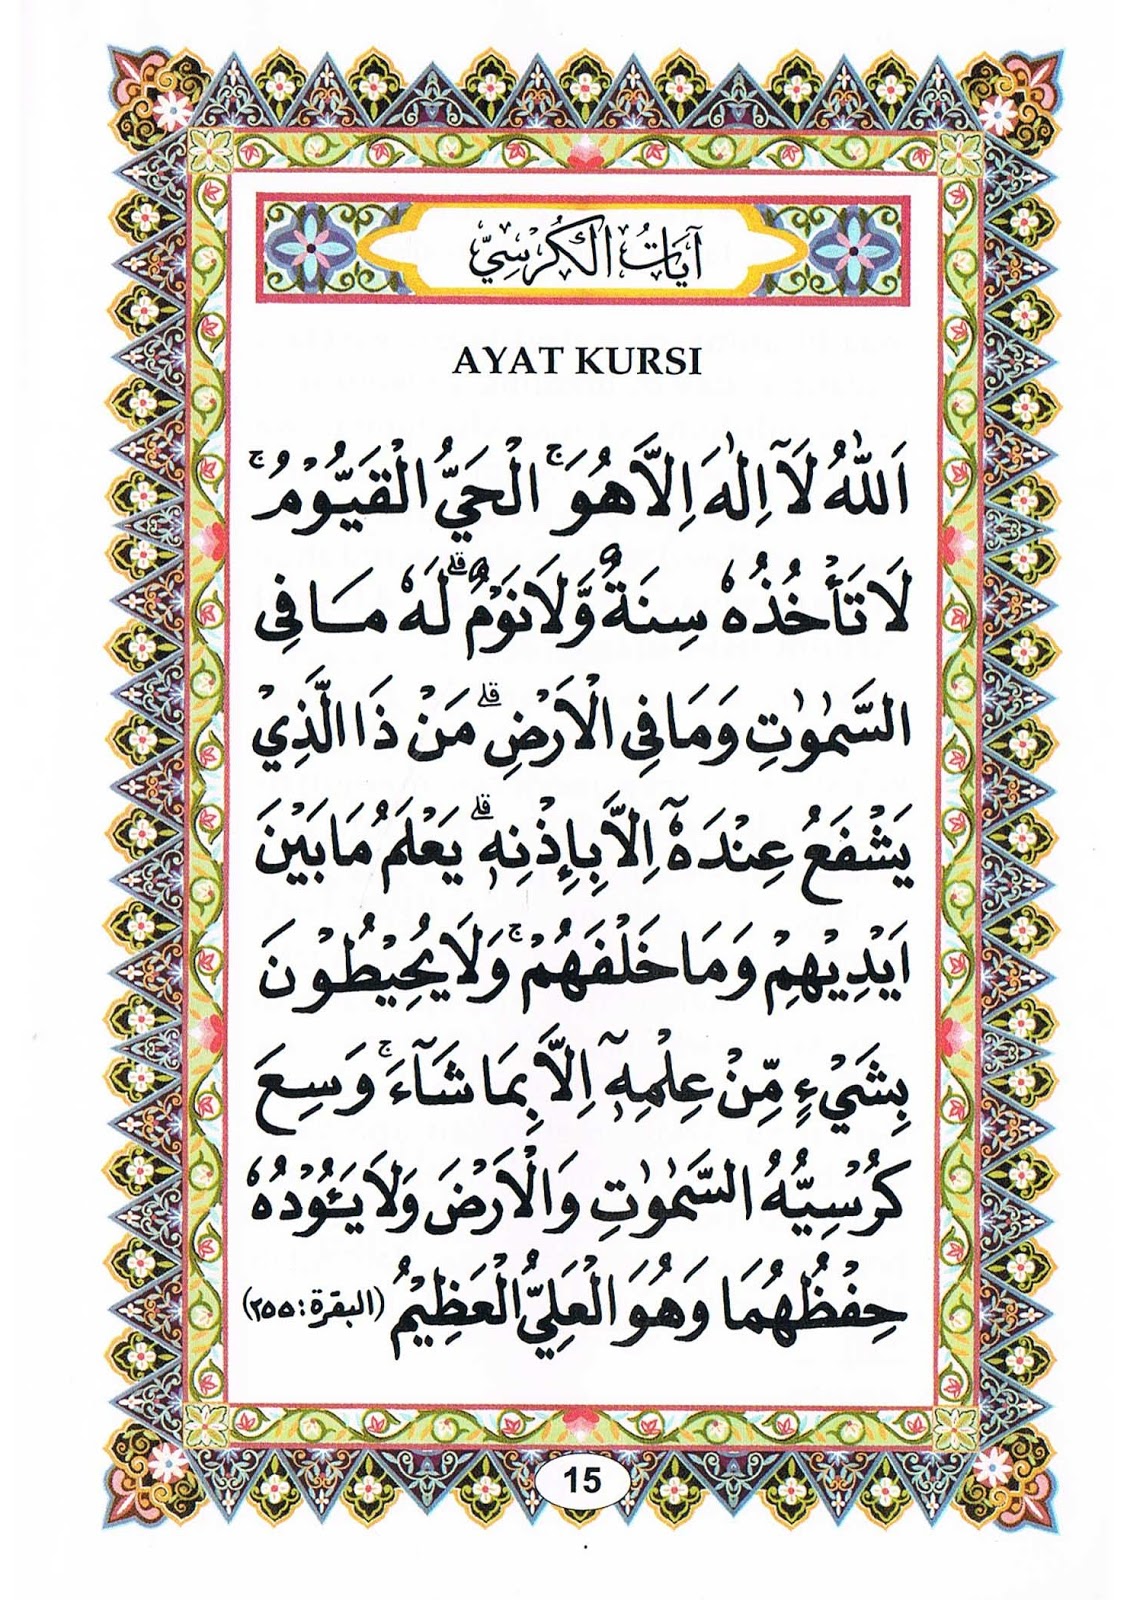 آيَاتُ الْكُرْسِيّ
AYAT KURSI
اَللّٰهُ لَآ اِلٰهَ اِلَّا هُوَ ۚ اَلْحَيُّ الْقَيُّوْمُ ۚ
لَا تَأْخُذُهٗ سِنَةٌ وَّلَا نَوْمٌ ۗ لَهٗ مَا فِى
السَّمٰوٰتِ وَمَا فِى الْاَرْضِ ۗ مَنْ ذَا الَّذِيْ
يَشْفَعُ عِنْدَهٗٓ اِلَّا بِاِذْنِهٖ ۗ يَعْلَمُ مَا بَيْنَ
اَيْدِيْهِمْ وَمَا خَلْفَهُمْ ۚ وَلَا يُحِيْطُوْنَ
بِشَيْءٍ مِّنْ عِلْمِهٖٓ اِلَّا بِمَا شَآءَ ۚ وَسِعَ
كُرْسِيُّهُ السَّمٰوٰتِ وَالْاَرْضَ وَلَا يَـُٔوْدُهٗ
حِفْظُهُمَا وَهُوَ الْعَلِيُّ الْعَظِيْمُ (البقرة: ٢٥٥)
15